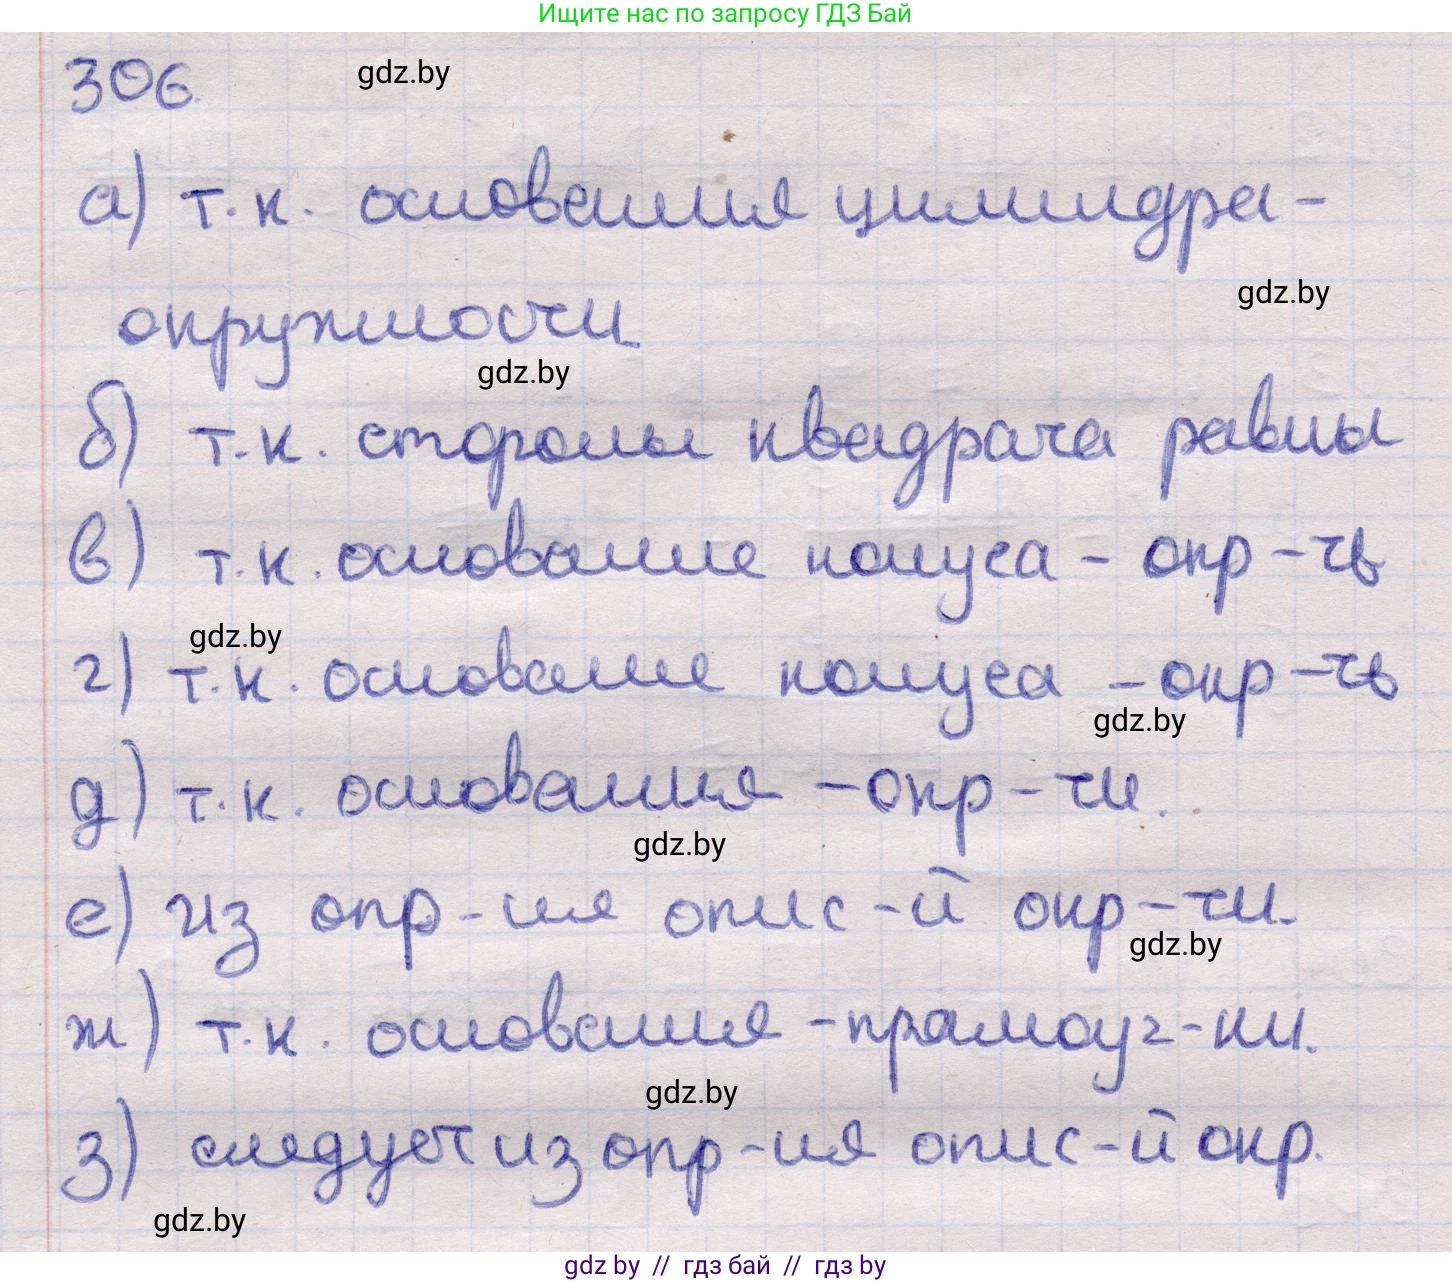 Ищите нас по запросу ГДЗ Бай
306.
gdz.by
а) т.к. основания цилиндра -
gdz.by
окружности
gdz.by
б) т.к. стороны квадрата равны
в) т.к. основание конуса - окр-ть
gdz.by
г) т.к. основание конуса - окр-ть
gdz.by
д) т.к. основания - окр-ти.
gdz.by
е) из опр-ия опис-й окр-ти.
gdz.by
ж) т.к. основания - прямоуг-ки.
gdz.by
з) следует из опр-ия опис-й окр.
gdz.by
gdz by // гдз бай // гдз by